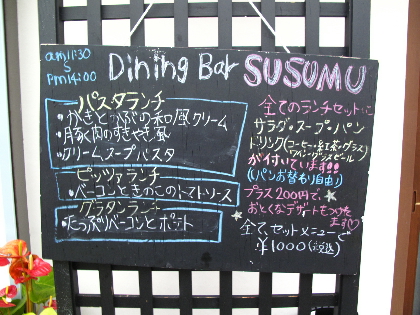 am11:30
S
pm14:00
Dining Bar SUSUMU
パスタランチ
・かきとかぶの和風クリーム
・豚肉のすきやき風
・クリームスープパスタ
ピッツァランチ
・ベーコンときのこのトマトソース
グラタンランチ
・たっぷりベーコンとポテト
全てのランチセットに
サラダ・スープ・パン
ドリンク(コーヒー・紅茶・グラス
ワイン・グラスビール
が付いています!!
(パンお替わり自由!)
プラス200円で、
おとくなデザートもつきます♡
全てセットメニューで
¥1000(税込)